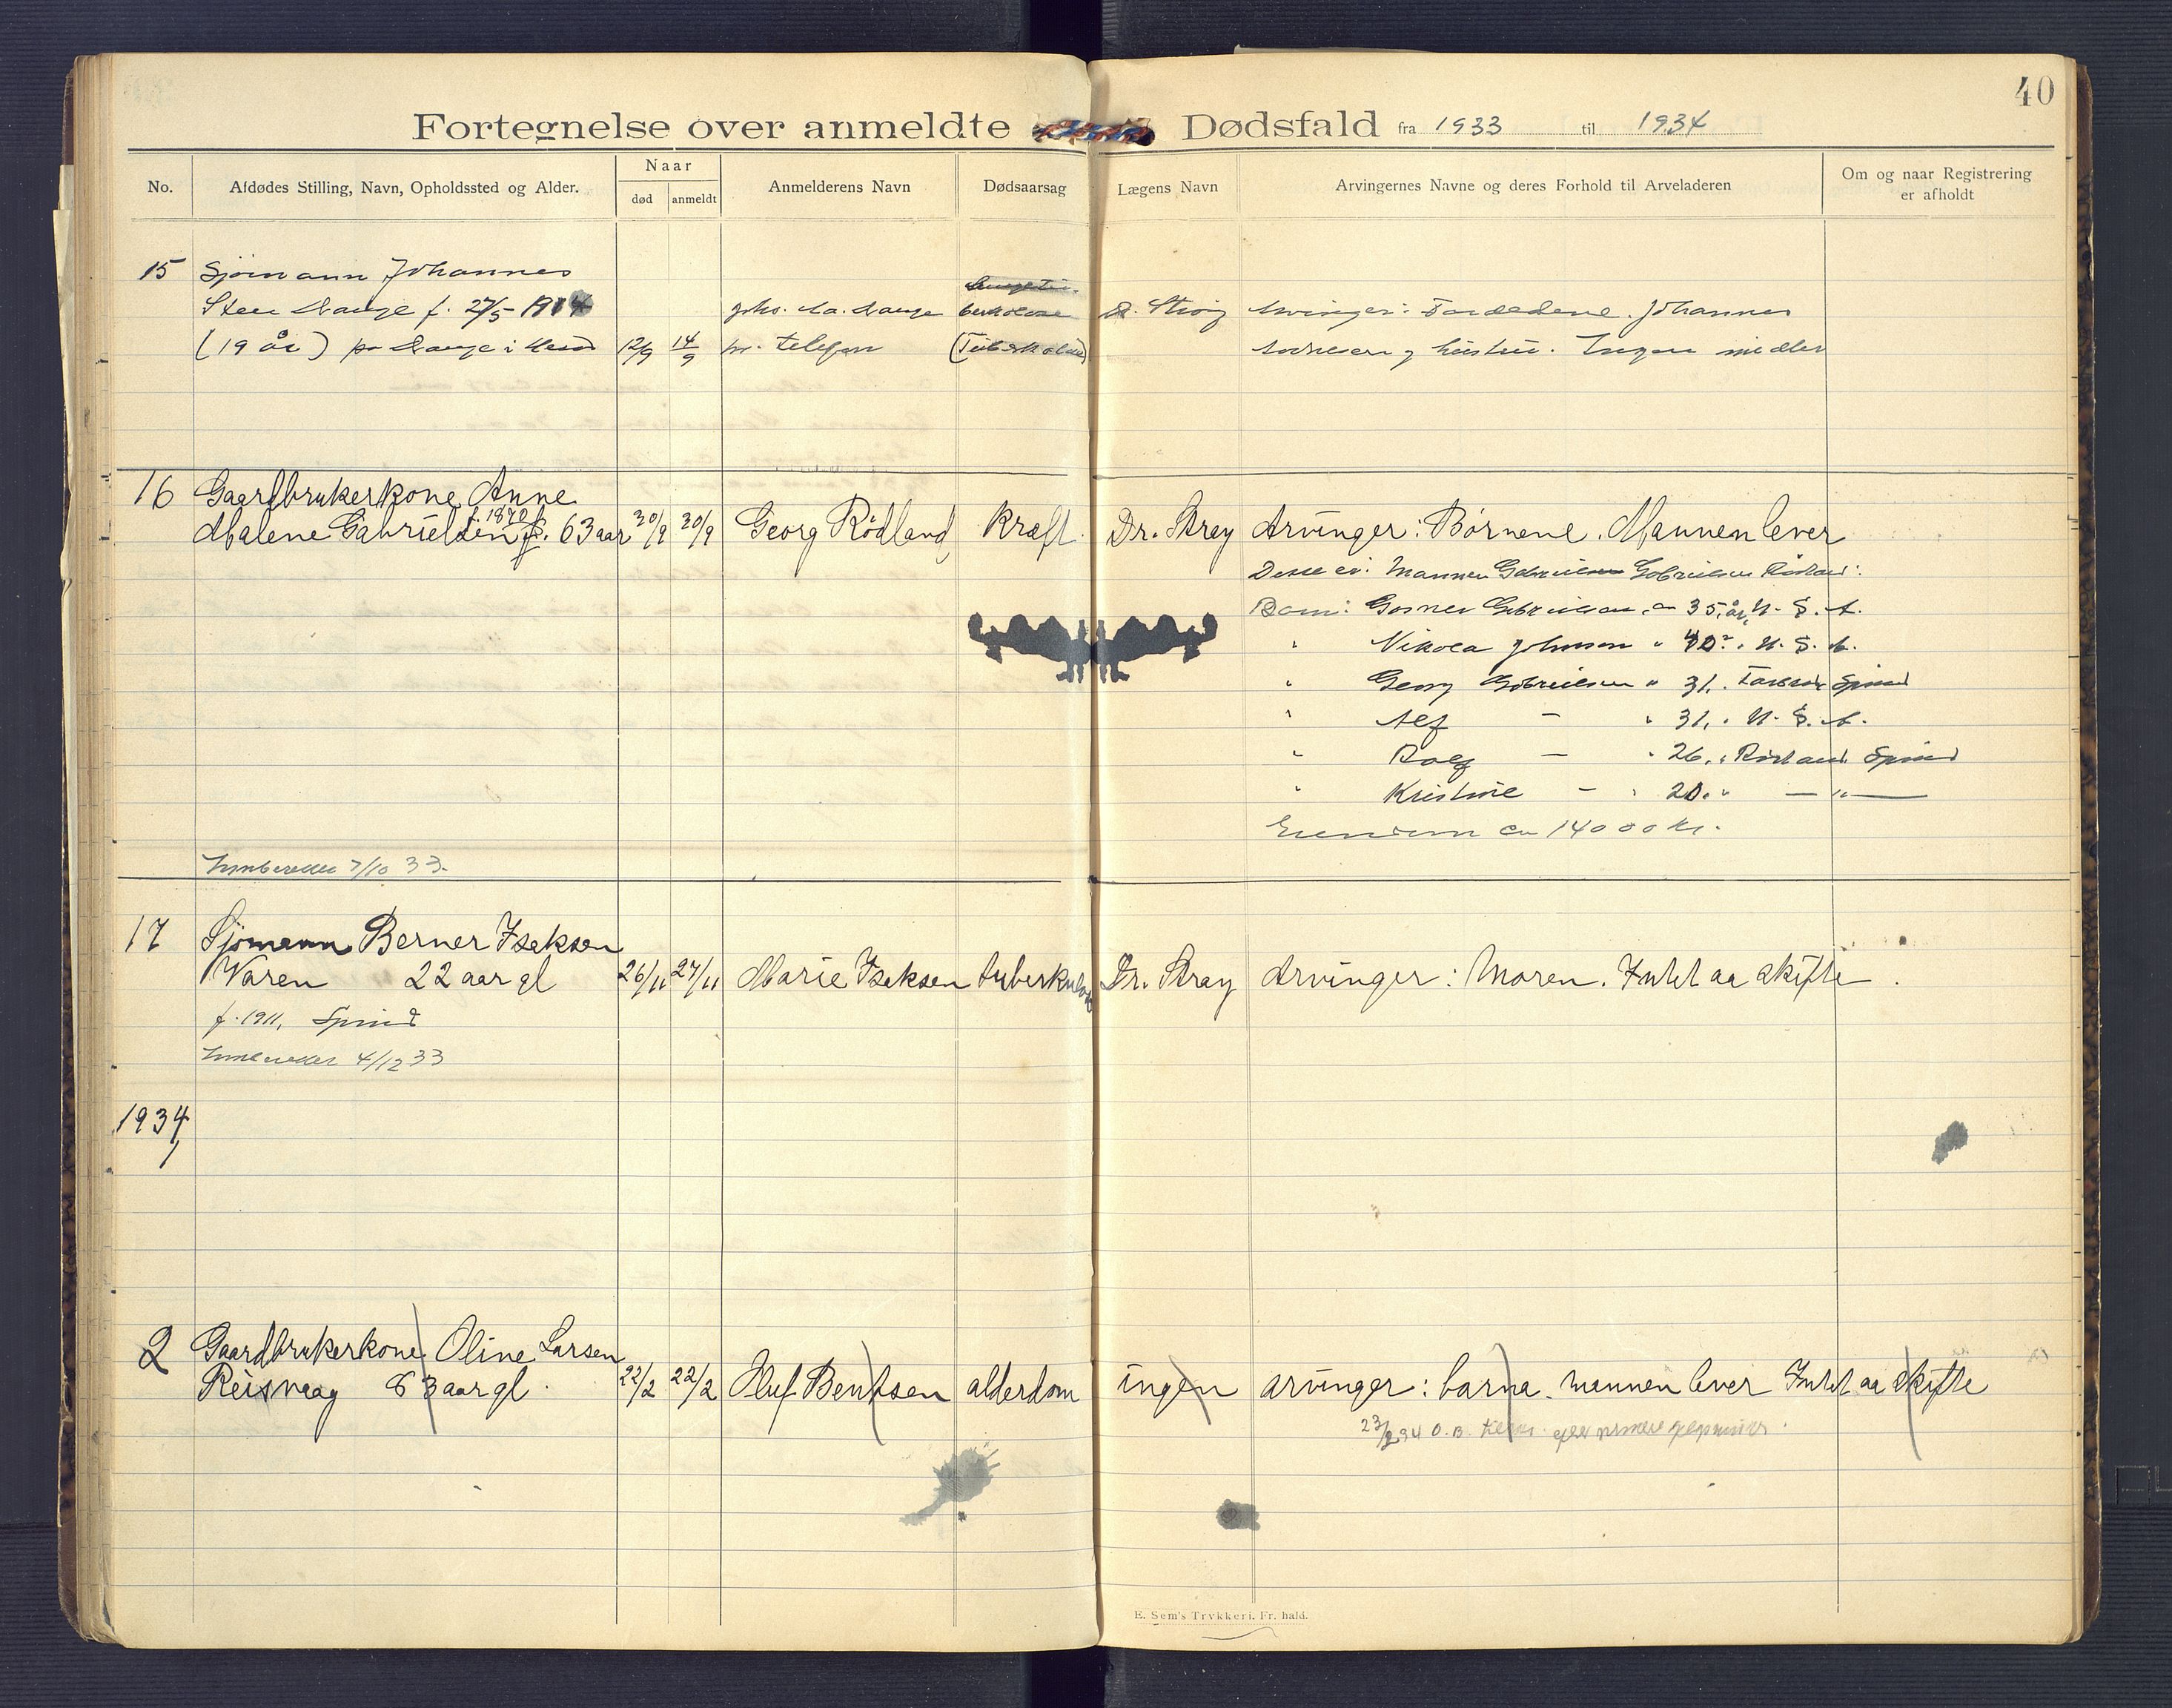 40
Fortegnelse over anmeldte Dødsfald fra 1933 til 1934
No.
Afdødes Stilling, Navn, Opholdssted og Alder.
Naar
død
anmeldt
Anmelderens Navn
Dødsaarsag
Lægens Navn
Arvingernes Navne og deres Forhold til Arveladeren
Om og naar Registrering
er afholdt
15 Sjømann Johannes
Sten Hauge f. 27/5 1914
(19 år) på Hauge i
12/9 14/9
Hauge
pr. telefon
(Tuberkulose)
Arvinger: Foreldrene. Johannes
og hustru. Ingen midler
16 Gaardbrukerkone Anne
f. 1870
Malene Gabrielsen 63 aar 30/9 30/9 Georg Rödland Kræft Dr. Stray Arvinger: Börnene. Mannen lever
Disse er: Mannen Gabriel Gabrielsen Rödland:
Barn: Gabrielsen, ca 35 år, U. S. A.
" Johnson " 40 " U. S. A.
" Georg Gabrielsen " 31. Spind
" Alf — " 31. " U. S. A.
" Rolf — " 26. " Rödland Spind
" Kristine — " 20. " — " —
Eiendom ca 14000 kr.
Innberettet 7/10 33.
17 Sjømann Berner Isaksen
Varen 22 aar gl 26/11 27/11 Marie Isaksen tuberkulose Dr. Stray Arvinger: Moren. Intet aa skifte.
f. 1911, Spind
Innberettet 4/12 33
1934
2 Gaardbrukerkone Oline Larsen
Reisvaag 83 aar gl. 22/2 22/2 Oluf Bentsen alderdom ingen arvinger: barna. mannen lever Intet aa skifte
23/2 34 O. B.
E. Sem's Trykkeri, Fr. hald.